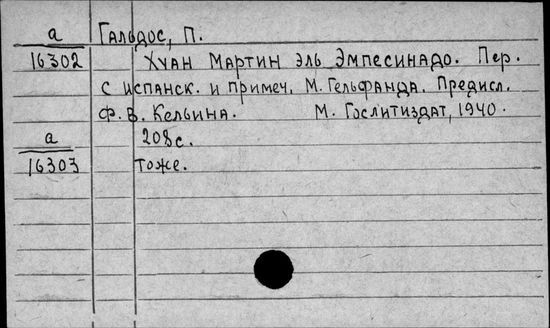 а Гальдос, П.
16302 Хуан Мартин эль Эмпесинадо. Пер.
с испанск. и примеч. М. Гельфанда. Предисл.
Ф. В. Кельина. М. Гослитиздат, 1940.
а 208с.
16303 тоже.